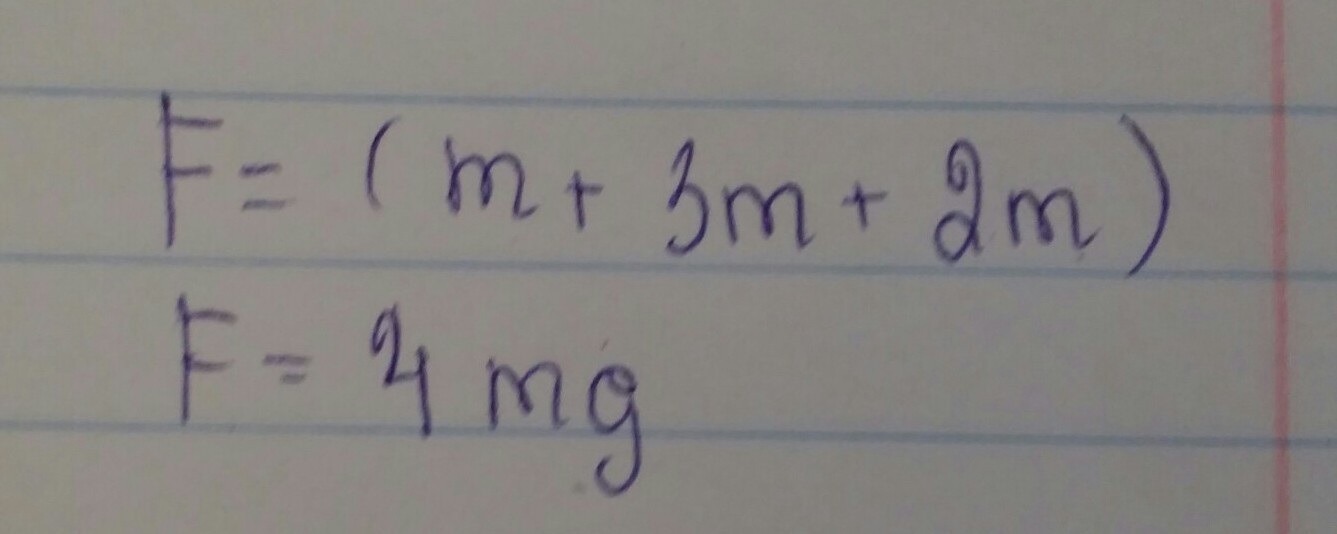 F = ( m + 3m + 2m )
F = 4 mg